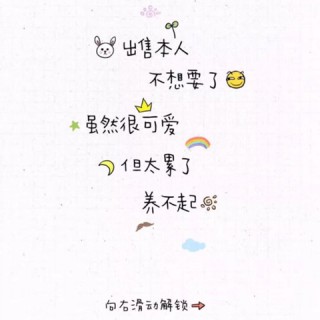 出售本人
不想要了
虽然很可爱
但太累了
养不起
向右滑动解锁